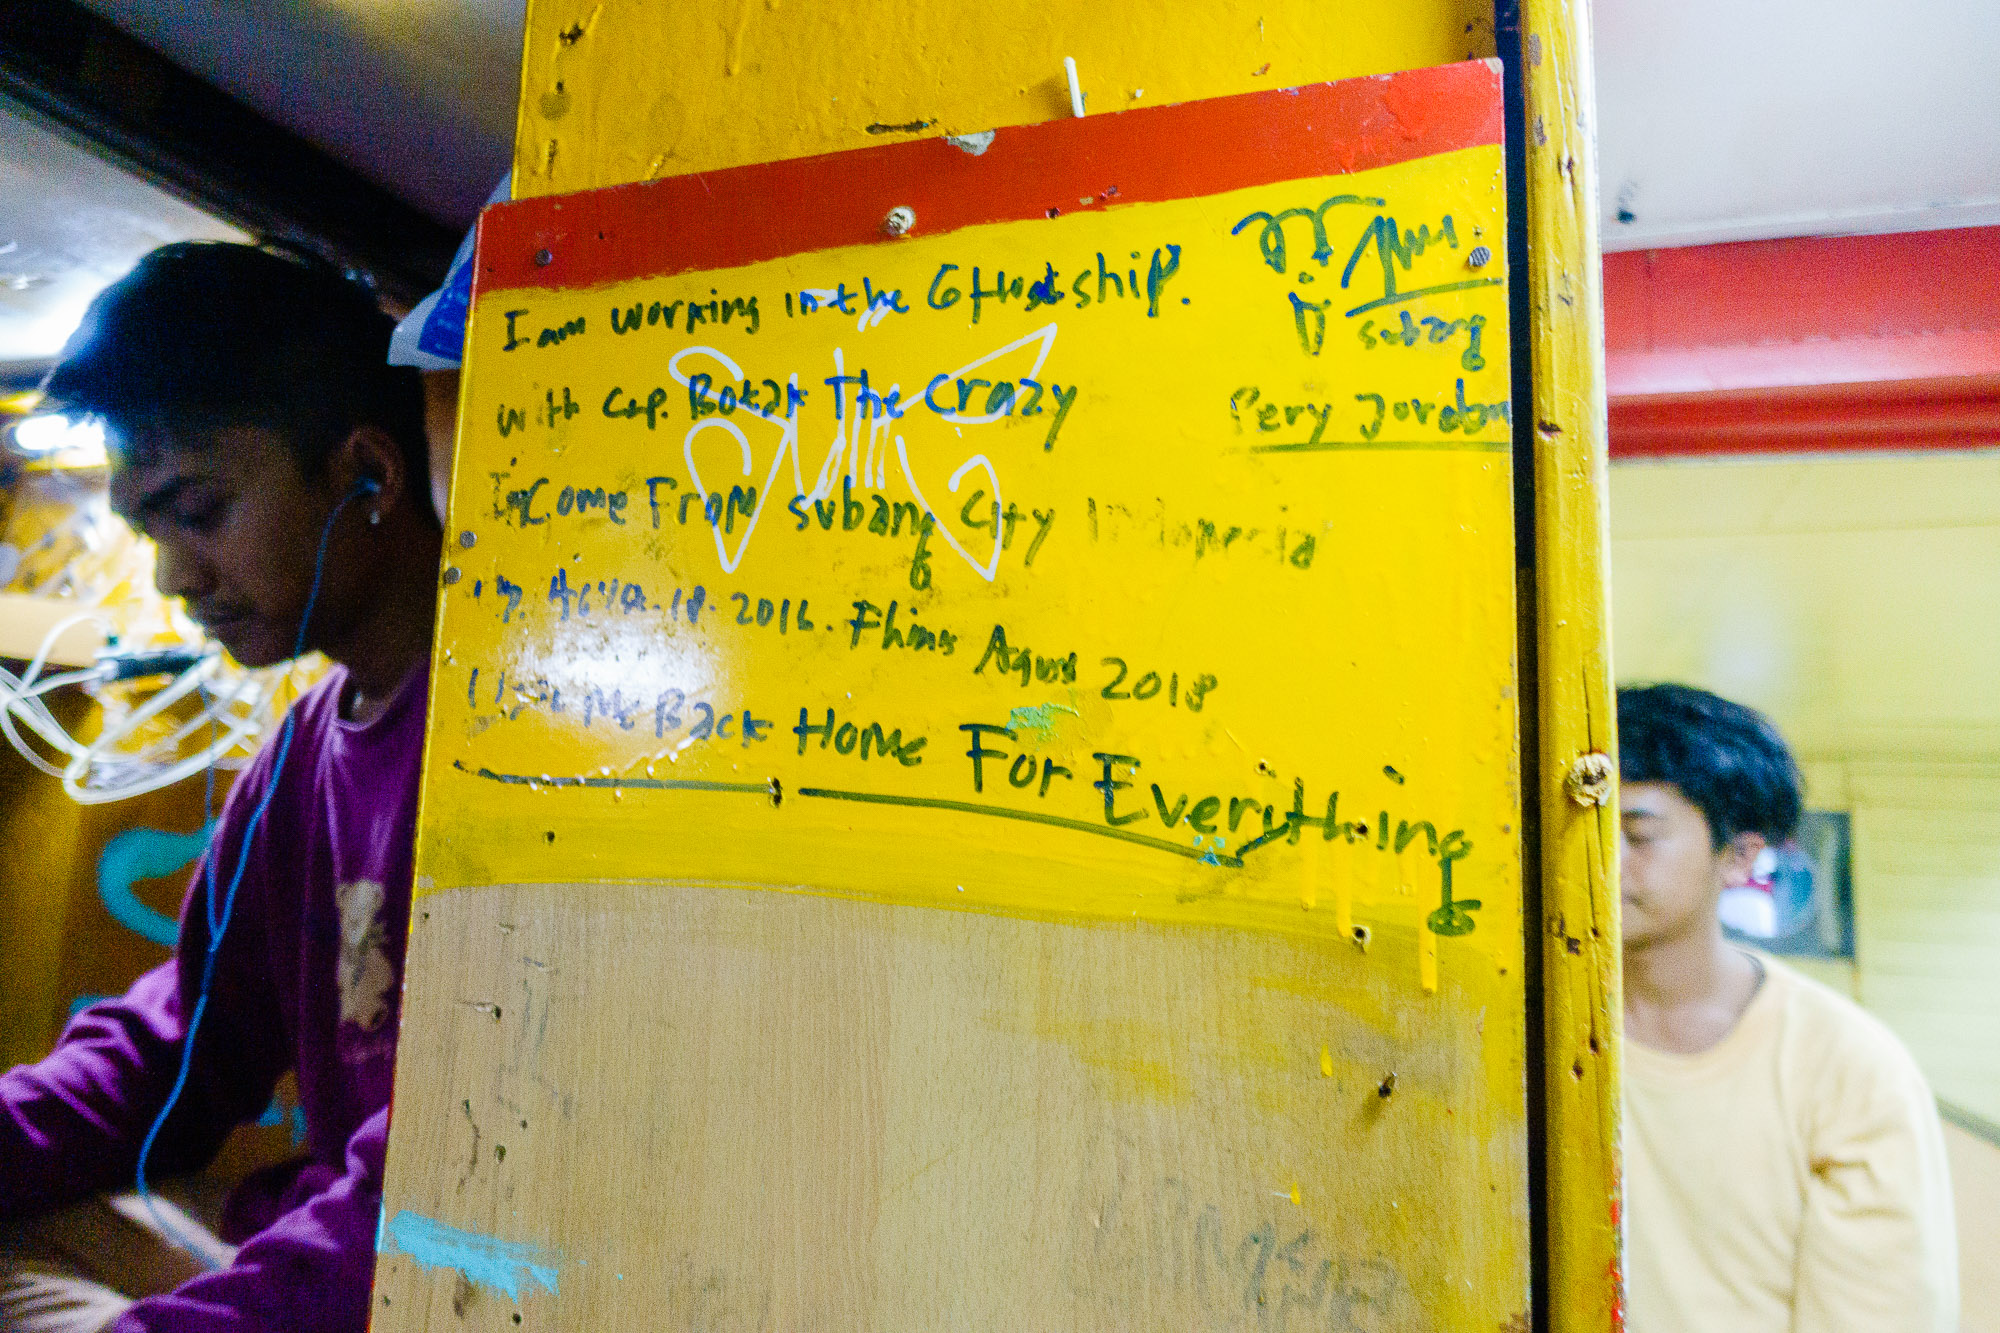 I am working in the Ghost ship.
with Cap. Botak The Crazy
I Come From subang City Indonesia
2016. Fhinis Agus 2018
Me Back Home For Everything
subang
Pery Jordan